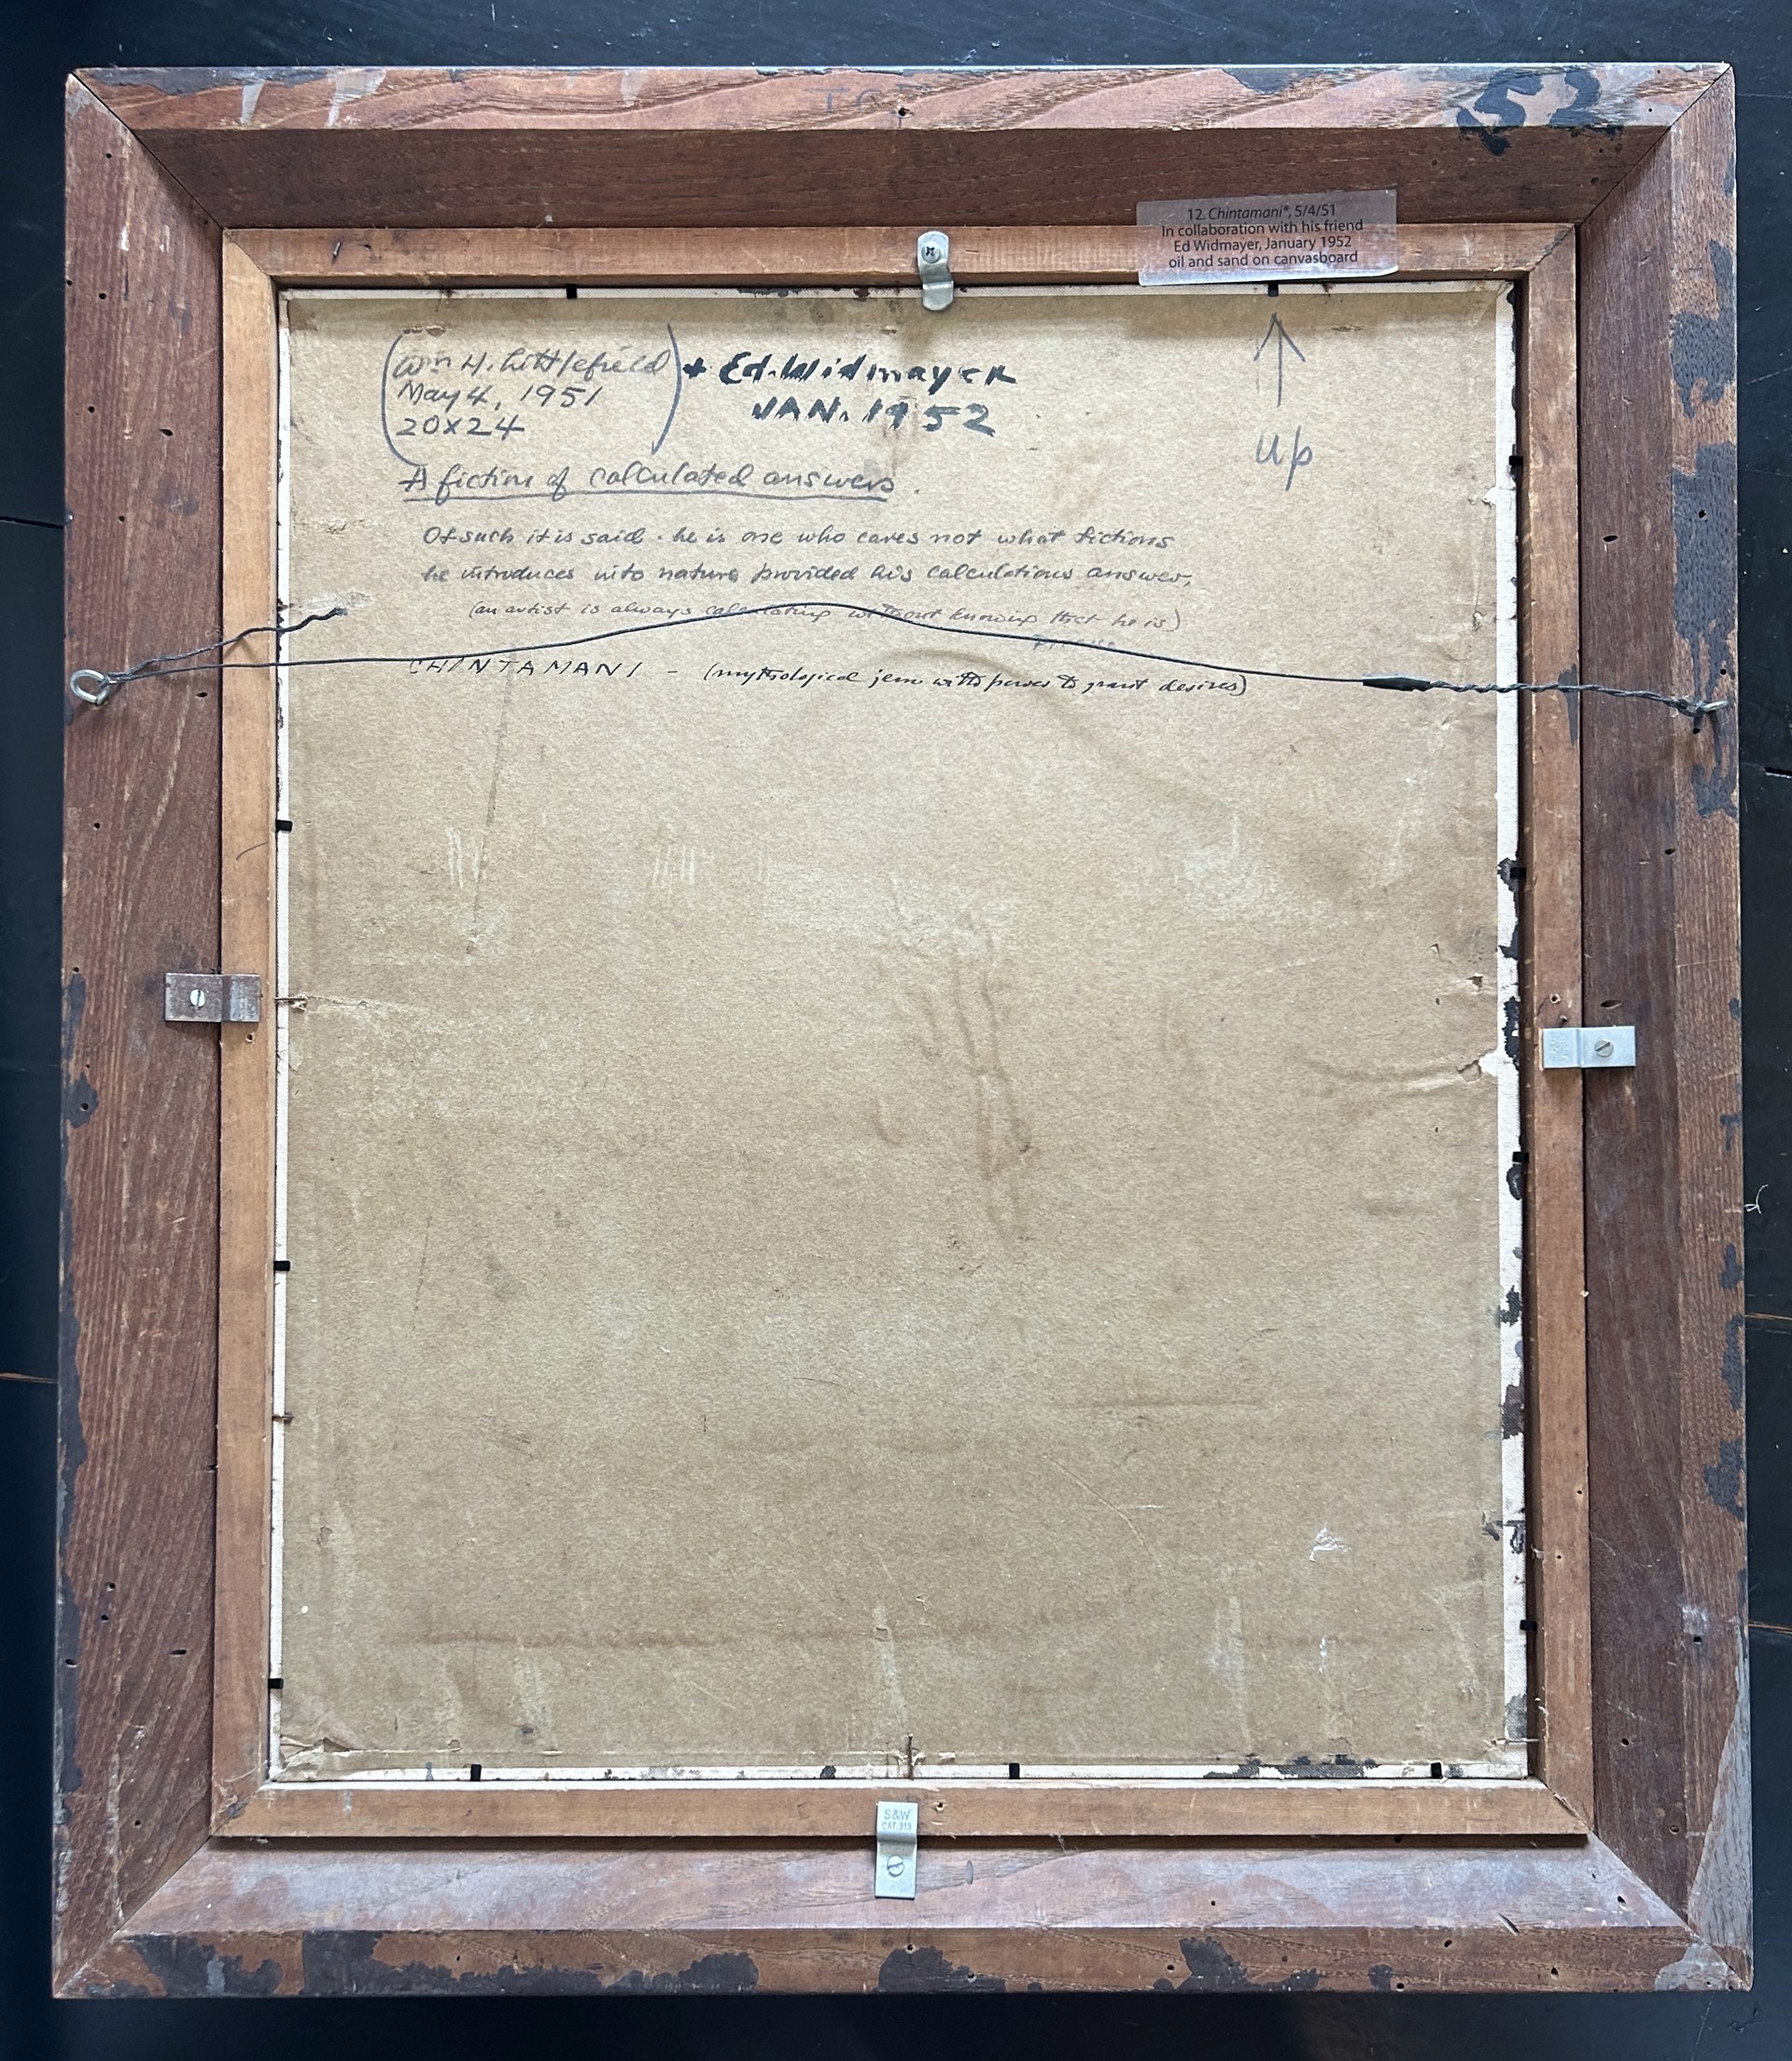 TOP
52
12. Chintamani*, 5/4/51
In collaboration with his friend
Ed Widmayer, January 1952
oil and sand on canvasboard
(Wm H. Littlefield) + Ed. Widmayer
May 4, 1951 JAN. 1952
20x24
up
A fiction of calculated answers.
Of such it is said - he is one who cares not what fictions
he introduces into nature provided his calculations answer.
(an artist is always calculating without knowing that he is)
CHINTAMANI - (mythological jem with power to grant desires)
S&W
CAT. 313